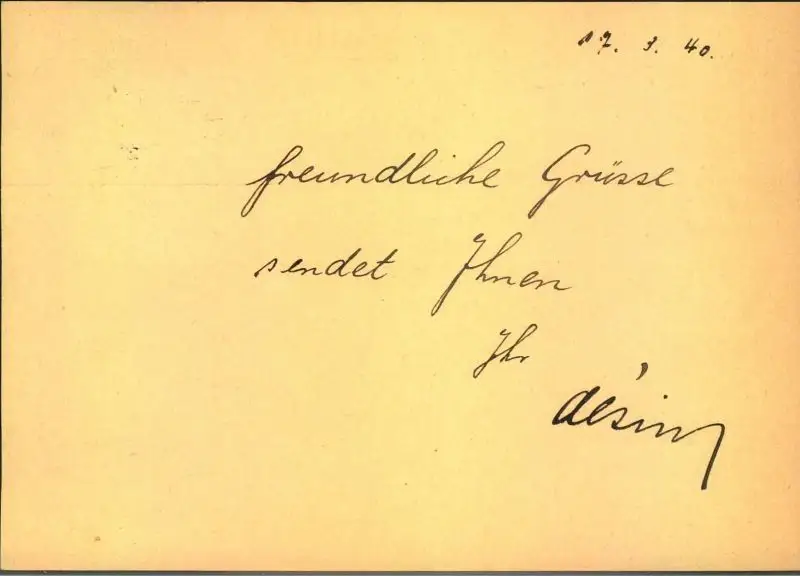 17. 3. 40.
freundliche Grüsse
sendet Ihnen
Ihr